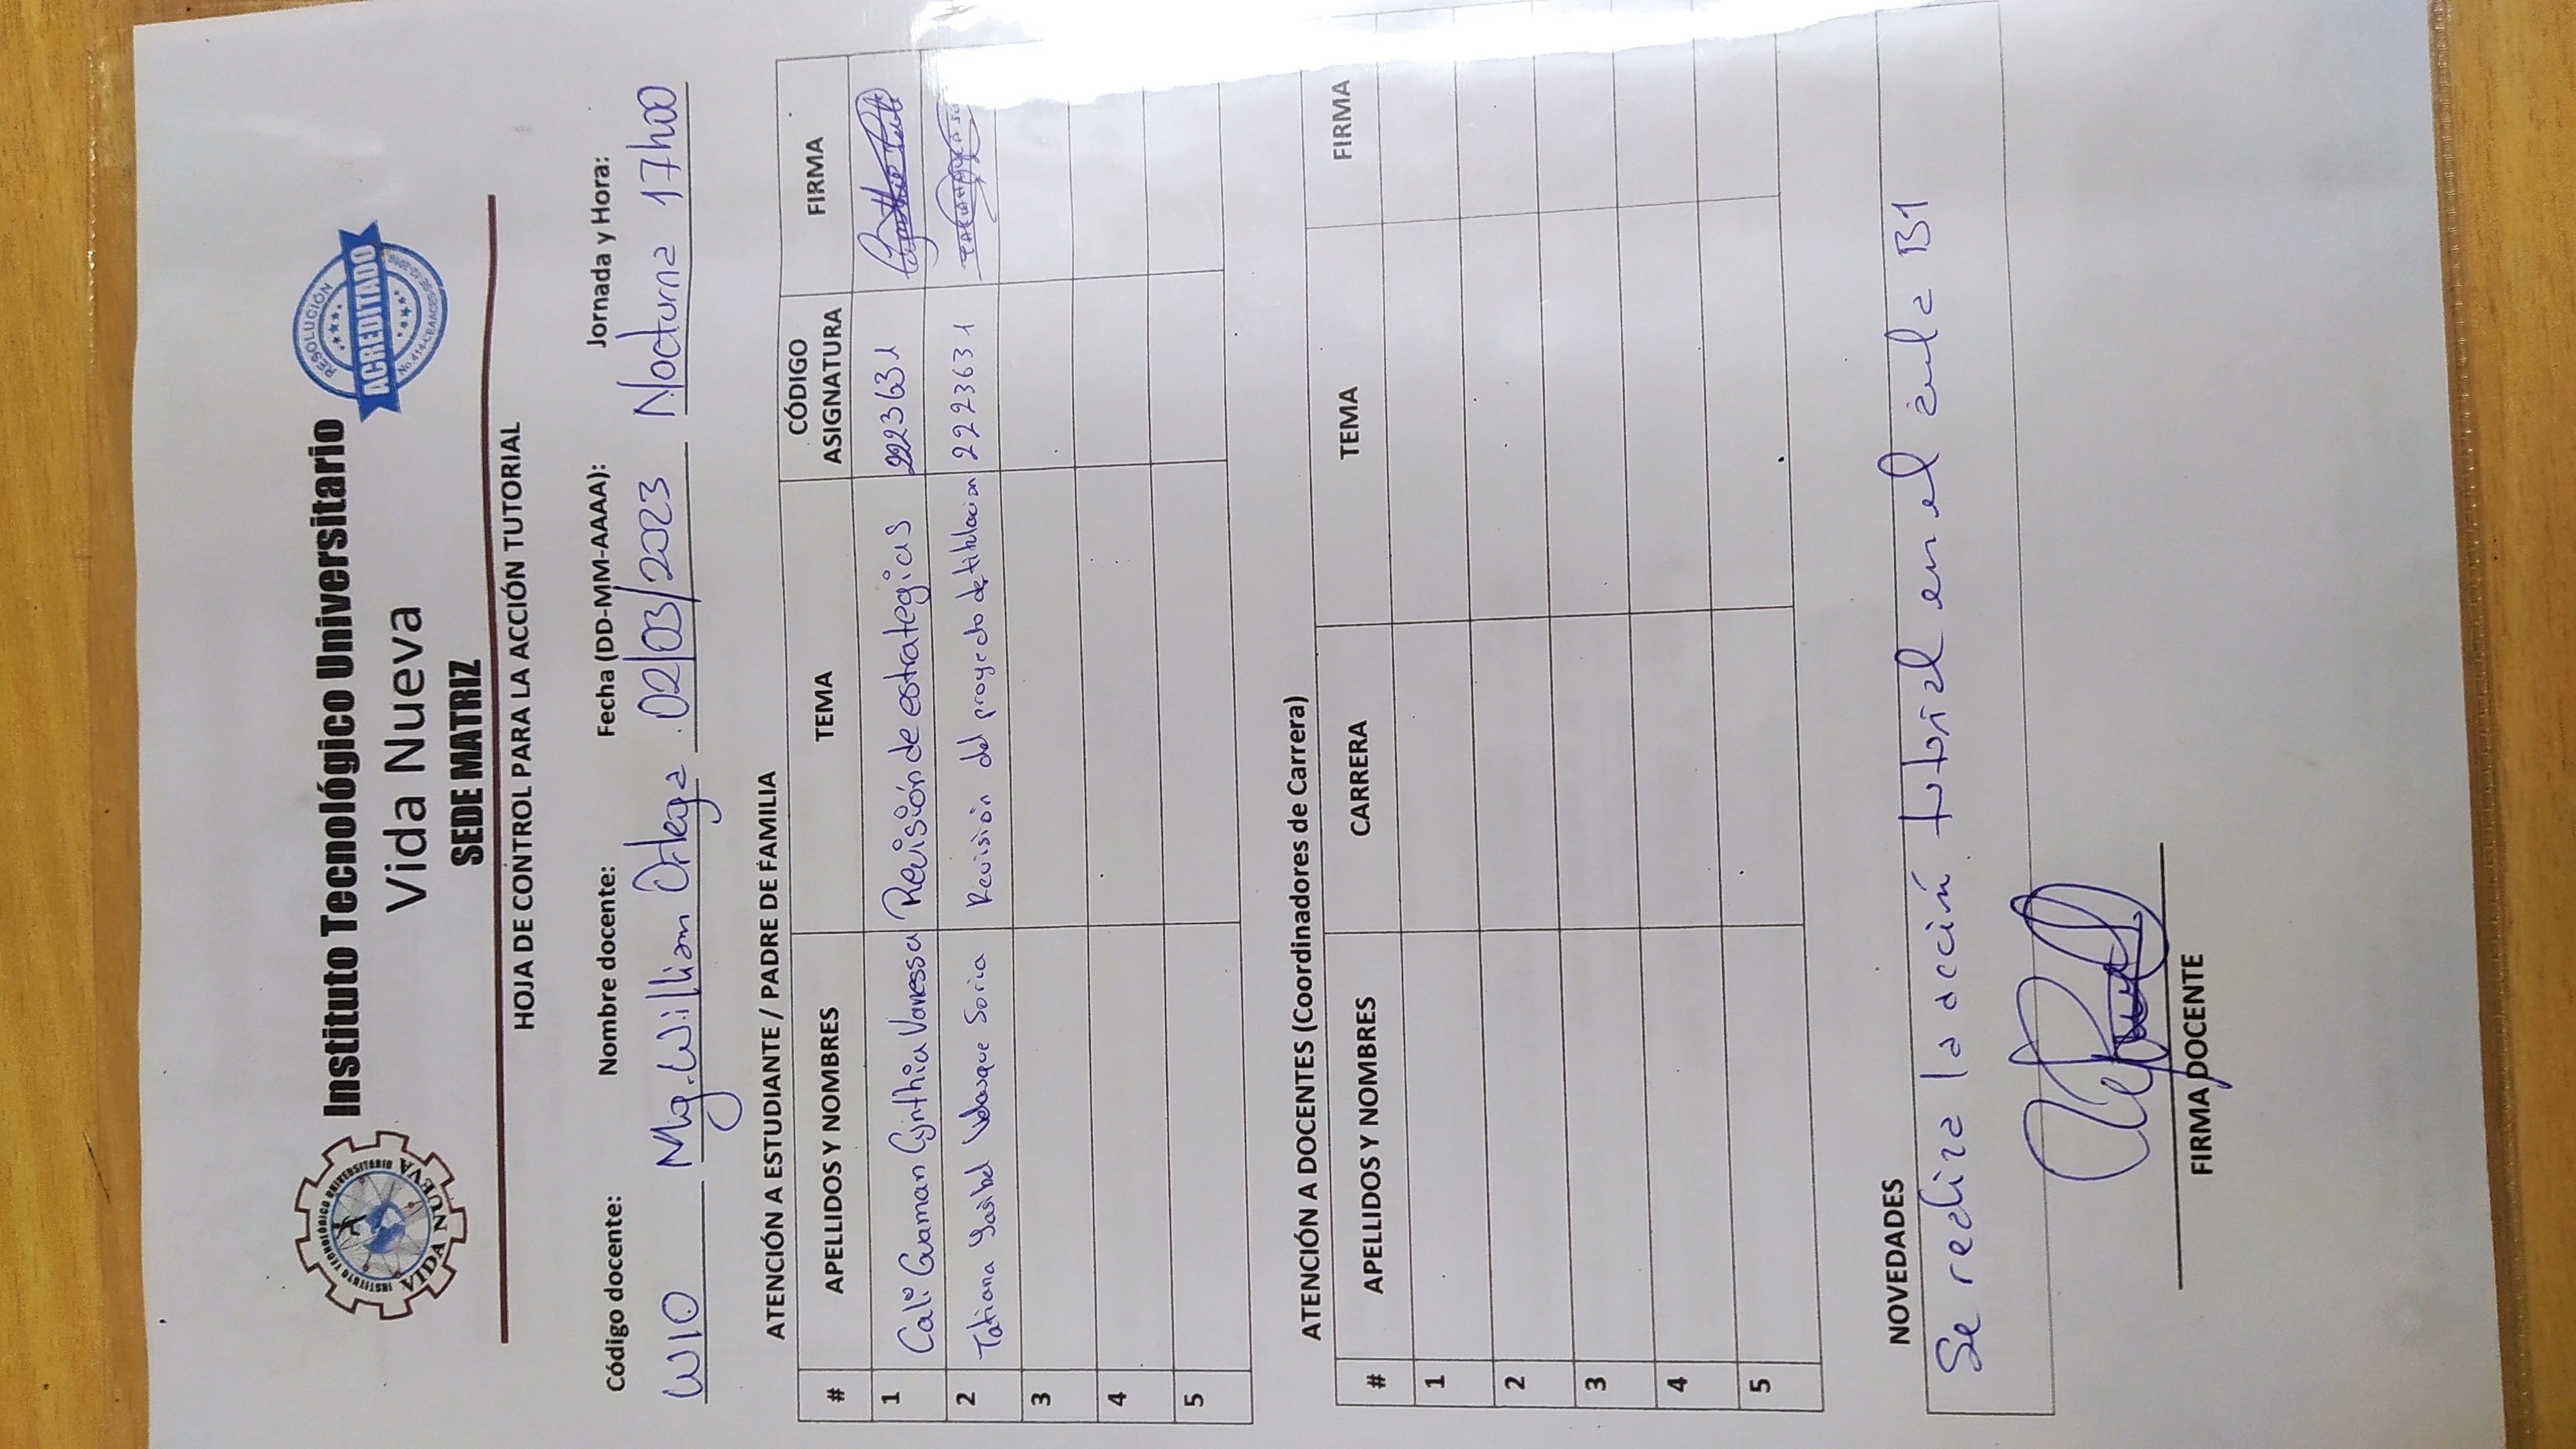 Instituto Tecnológico Universitario
Vida Nueva
SEDE MATRIZ
INSTITUTO TECNOLÓGICO UNIVERSITARIO
VIDA NUEVA
RESOLUCIÓN
ACREDITADO
HOJA DE CONTROL PARA LA ACCIÓN TUTORIAL
Código docente: Nombre docente: Fecha (DD-MM-AAAA): Jornada y Hora:
W10 Mg. William Ortega 02/03/2023 Nocturna 17h00
ATENCIÓN A ESTUDIANTE / PADRE DE FAMILIA
# APELLIDOS Y NOMBRES TEMA CÓDIGO ASIGNATURA FIRMA
1 Cali Guaman Cynthia Vanessa Revisión de estrategias 2223631
2 Tatiana Velasque Soria Revisión del proyecto de titulacion 2223631
3
4
5
ATENCIÓN A DOCENTES (Coordinadores de Carrera)
# APELLIDOS Y NOMBRES CARRERA TEMA FIRMA
1
2
3
4
5
NOVEDADES
Se realiza la acción tutorial en el aula B1
FIRMA DOCENTE